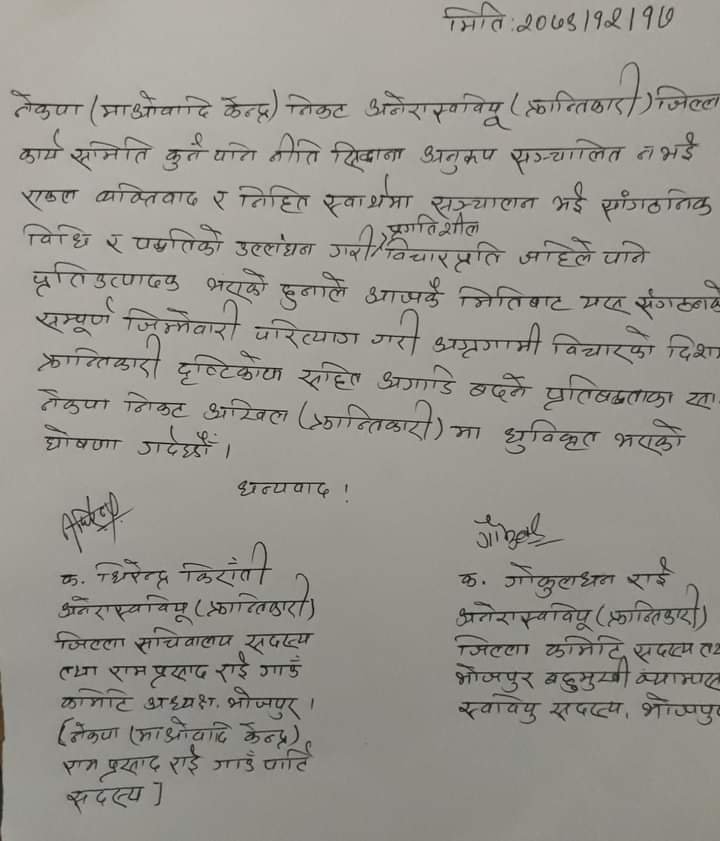 मिति: २०७९।१२।१७
नेकपा (माओवादि केन्द्र) निकट अनेरास्ववियू (क्रान्तिकारी) जिल्ला
कार्य समिति कुनै पनि नीति सिद्धान्त अनुरूप सञ्चालित नभई
एकल व्यक्तिवाद र निहित स्वार्थमा सञ्चालन भई सांगठनिक
विधि र पद्धतिको उल्लंघन गरी प्रगतिशील विचार प्रति जहिले पनि
प्रतिउत्पादक भएको हुनाले आजकै मितिबाट यस संगठनको
सम्पूर्ण जिम्मेवारी परित्याग गरी अग्रगामी विचारको दिशा
क्रान्तिकारी दृष्टिकोण सहित अगाडि बढ्ने प्रतिबद्धताका सा
नेकपा निकट अखिल (क्रान्तिकारी) मा ध्रुविकृत भएको
घोषणा गर्दछौं।
धन्यवाद !
क. धिरेन्द्र किराँती
अनेरास्ववियू (क्रान्तिकारी)
जिल्ला सचिवालय सदस्य
तथा राम प्रसाद राई गाउँ
कमिटि अध्यक्ष, भोजपुर।
(नेकपा (माओवादि केन्द्र)
राम प्रसाद राई गाउँ पार्टि
सदस्य ]
क. गोकुलधन राई
अनेरास्ववियू (क्रान्तिकारी)
जिल्ला कमिटि सदस्य तथ
भोजपुर बहुमुखी क्याम्पस
स्ववियु सदस्य, भोजपुर